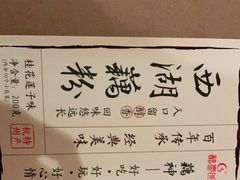 西湖藕粉
入口留香
回味悠远长
桂花莲子味
净含量：200克
百年传承
经典美味
杭州特产
藕神
好吃·好玩·好心情